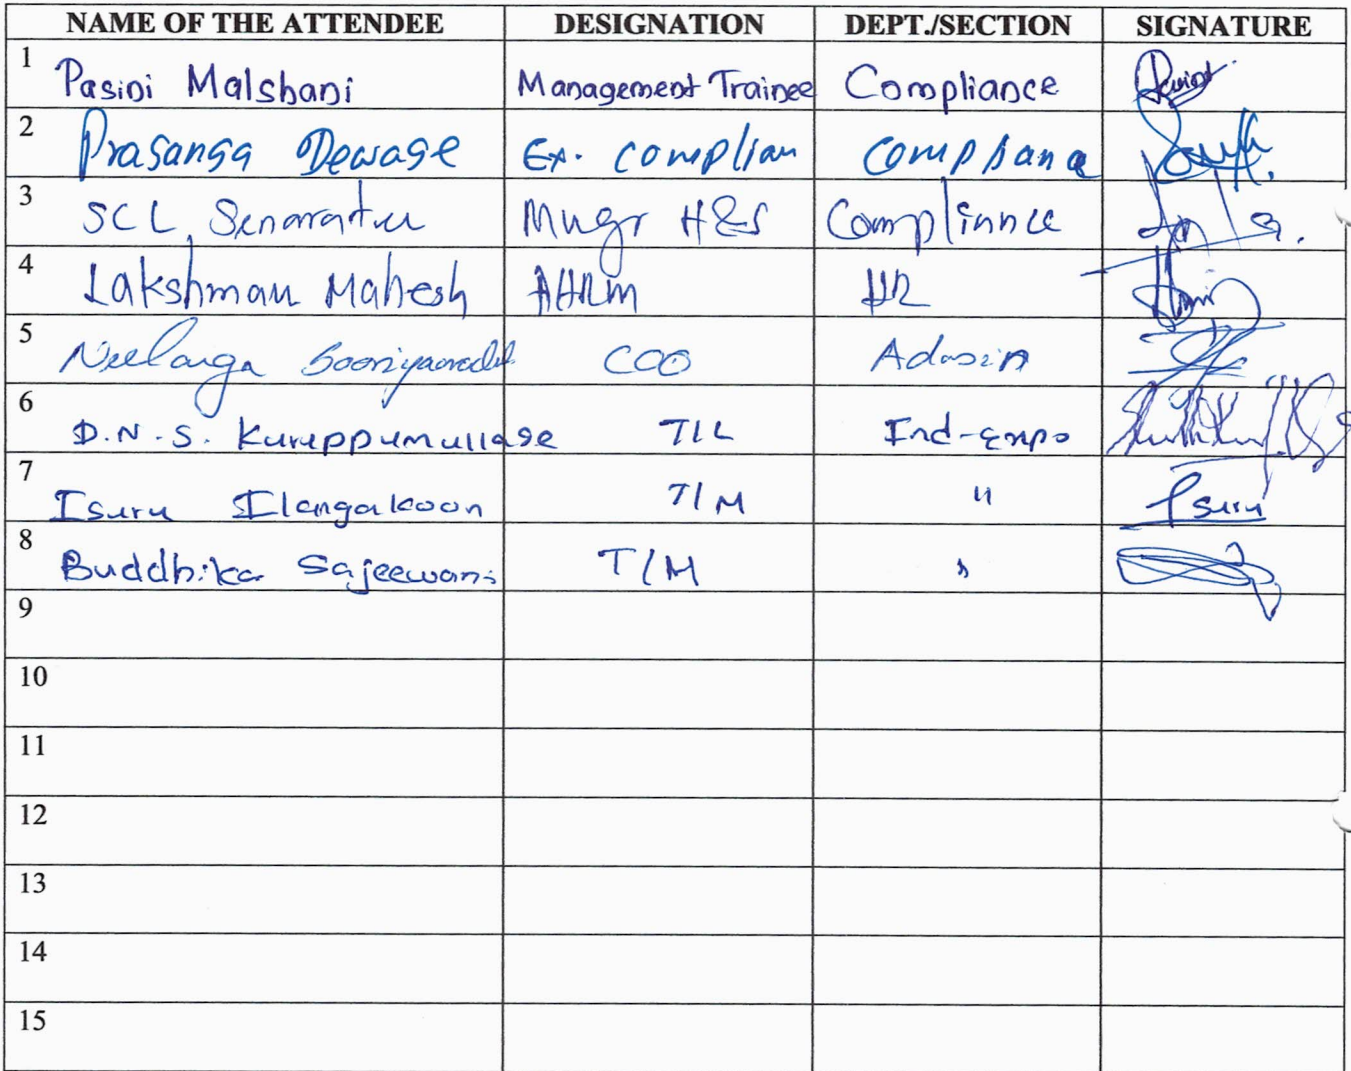 NAME OF THE ATTENDEE DESIGNATION DEPT./SECTION SIGNATURE
1 Pasini Malshani Management Trainee Compliance
2 Prasanga Dewage Ex. Complian Compliance
3 SCL Senaratne Mngr H&S Compliance
4 Lakshman Mahesh AHRM HR
5 Neelanga COO Admin
6 D.N.S. Kuruppumullage T/L Ind-Expo
7 Isuru Ilangakoon T/M " Isuru
8 Buddhika Sajeewani T/M "
9
10
11
12
13
14
15